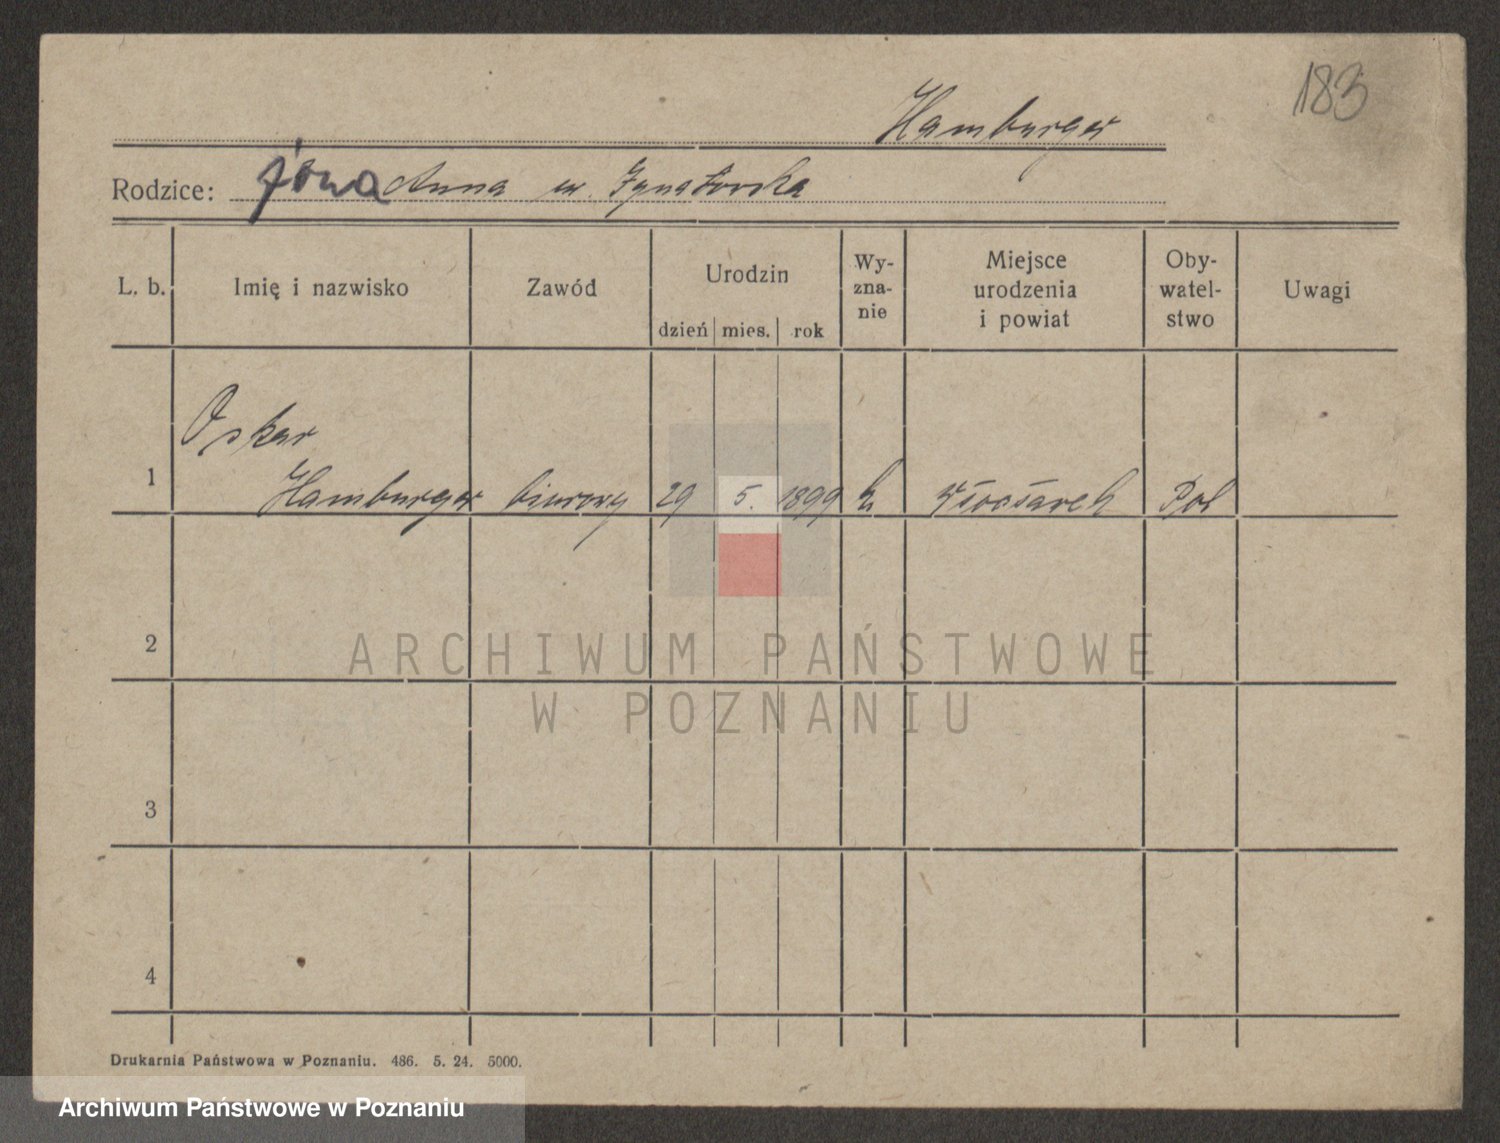 183
Hamburger
Rodzice: Jóna Anna ur. Ignatowska
L. b. Imię i nazwisko Zawód Urodzin dzień mies. rok Wy-zna-nie Miejsce urodzenia i powiat Oby-watel-stwo Uwagi
Oskar
1 Hamburger biurowy 29 5. 1899 k. Pol
2
ARCHIWUM PAŃSTWOWE
W POZNANIU
3
4
Drukarnia Państwowa w Poznaniu. 486. 5. 24. 5000.
Archiwum Państwowe w Poznaniu